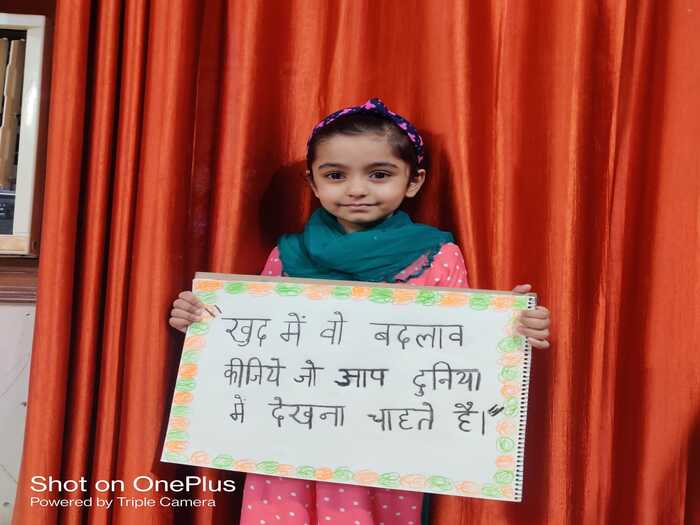 "खुद में वो बदलाव
कीजिये जो आप दुनिया
में देखना चाहते है।"
Shot on OnePlus
Powered by Triple Camera